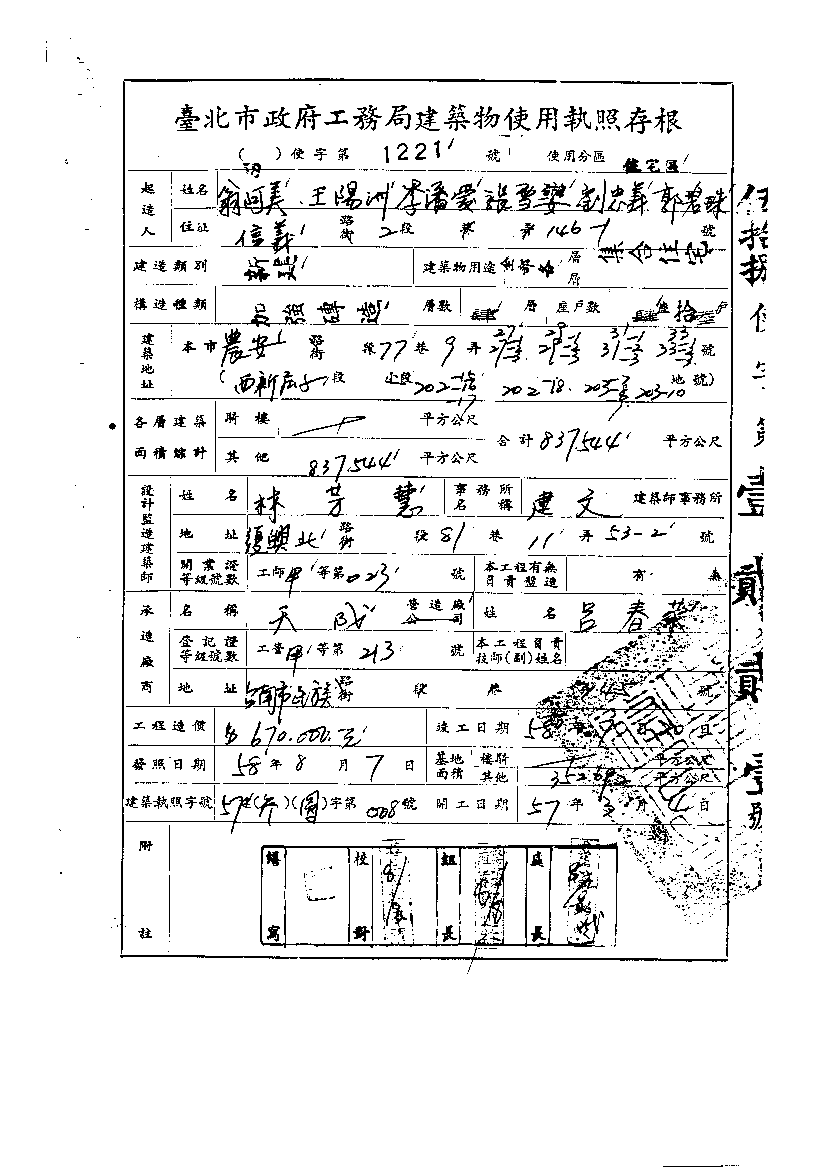 臺北市政府工務局建築物使用執照存根
( )使字第 1221 號 使用分區 住宅區
起造人 姓名 王陽洲 李潘愛 張雪 劉忠義 郭碧珠
住址 信義 路街 2 段 巷 弄 146-1 號
建造類別 新建 建築物用途 層 層 集合住宅
構造種類 加強磚造 層數 肆 層 座戶數 拾 戶
建築地址 本市 農安 路街 段 77 巷 9 弄 27 29 31 33 號
(西新庄子段 小段 202-16 -17 202-18 203-10 地號)
各層建築面積總計 騎樓 平方公尺 合計 837.544 平方公尺
其他 837.544 平方公尺
設計監造建築師 姓名 林芳慧 事務所名稱 建文 建築師事務所
地址 復興北 路街 段 81 巷 11 弄 53-2 號
開業證等級號數 工師甲等第 023 號 本工程有無負責監造 有 無
承造廠商 名稱 天成 營造廠公司 姓名 呂春榮
登記證等級號數 工營甲等第 213 號 本工程負責技師(副)姓名
地址 台南市民族 路街 段 巷 45 號
工程造價 $670.000.元 竣工日期 58 年 月 20 日
發照日期 58 年 8 月 7 日 基地面積 騎樓 平方公尺
其他 352.692 平方公尺
建築執照字號 57 字第 008 號 開工日期 57 年 3 月 4 日
附註 繕寫 校對 組長 處長
伍拾捌使字第壹貳貳壹號